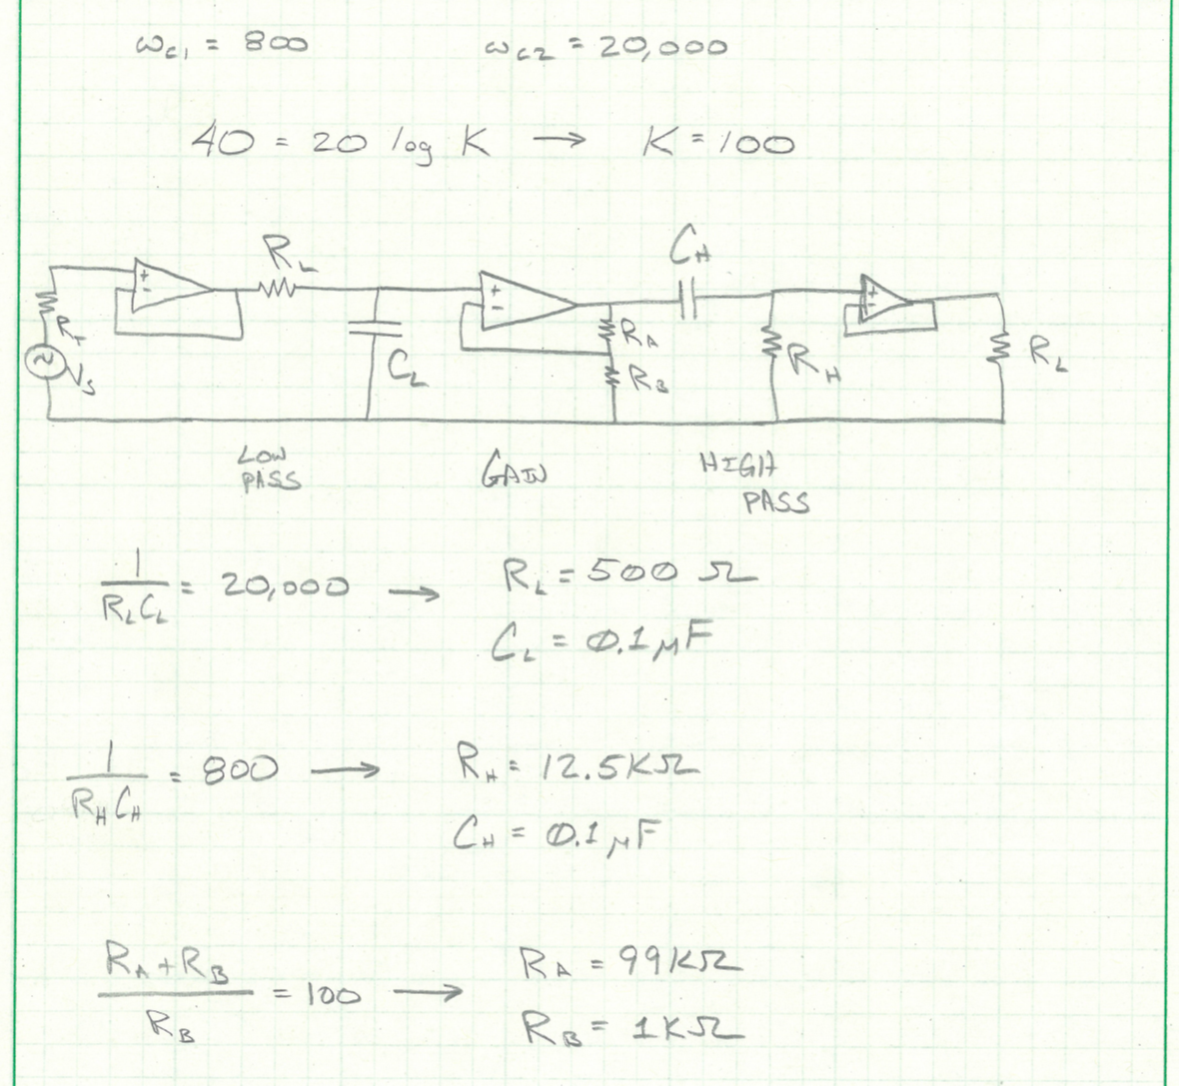 ω_c1 = 800 ω_c2 = 20,000
40 = 20 log K → K = 100
R_L C_H
+ + +
- - -
R_A
C_L R_B R_H R_L
V_s
LOW GAIN HIGH
PASS PASS
1/(R_L C_L) = 20,000 → R_L = 500 Ω
C_L = 0.1 μF
1/(R_H C_H) = 800 → R_H = 12.5KΩ
C_H = 0.1 μF
(R_A + R_B)/R_B = 100 → R_A = 99KΩ
R_B = 1KΩ